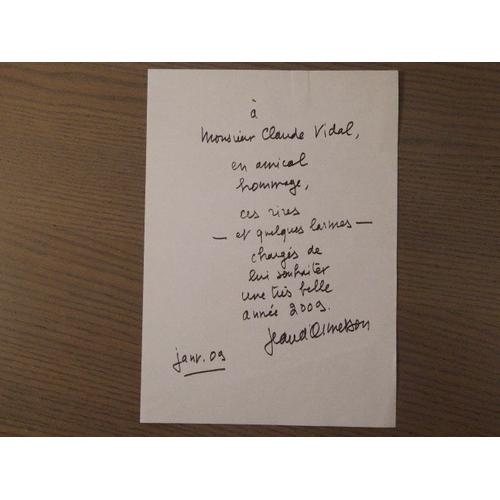 à
Monsieur Claude Vidal,
en amical
hommage,
ces rires
— et quelques larmes —
chargés de
lui souhaiter
une très belle
année 2009.
Jean d'Ormesson
janv. 09